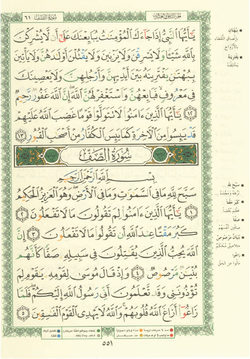 سُورَةُ المُمتَحنَة ٦٠
يَٰٓأَيُّهَا ٱلنَّبِيُّ إِذَا جَآءَكَ ٱلْمُؤْمِنَٰتُ يُبَايِعْنَكَ عَلَىٰٓ أَن لَّا يُشْرِكْنَ
بِٱللَّهِ شَيْـًٔا وَلَا يَسْرِقْنَ وَلَا يَزْنِينَ وَلَا يَقْتُلْنَ أَوْلَٰدَهُنَّ وَلَا يَأْتِينَ
بِبُهْتَٰنٍ يَفْتَرِينَهُۥ بَيْنَ أَيْدِيهِنَّ وَأَرْجُلِهِنَّ وَلَا يَعْصِينَكَ
فِى مَعْرُوفٍ فَبَايِعْهُنَّ وَٱسْتَغْفِرْ لَهُنَّ ٱللَّهَ إِنَّ ٱللَّهَ غَفُورٌ رَّحِيمٌ ١٢
يَٰٓأَيُّهَا ٱلَّذِينَ ءَامَنُوا۟ لَا تَتَوَلَّوْا۟ قَوْمًا غَضِبَ ٱللَّهُ عَلَيْهِمْ
قَدْ يَئِسُوا۟ مِنَ ٱلْءَاخِرَةِ كَمَا يَئِسَ ٱلْكُفَّارُ مِنْ أَصْحَٰبِ ٱلْقُبُورِ ١٣
سُورَةُ الصَّفِّ
بِسْمِ ٱللَّهِ ٱلرَّحْمَٰنِ ٱلرَّحِيمِ
سَبَّحَ لِلَّهِ مَا فِى ٱلسَّمَٰوَٰتِ وَمَا فِى ٱلْأَرْضِ وَهُوَ ٱلْعَزِيزُ ٱلْحَكِيمُ
١ يَٰٓأَيُّهَا ٱلَّذِينَ ءَامَنُوا۟ لِمَ تَقُولُونَ مَا لَا تَفْعَلُونَ ٢
كَبُرَ مَقْتًا عِندَ ٱللَّهِ أَن تَقُولُوا۟ مَا لَا تَفْعَلُونَ ٣ إِنَّ
ٱللَّهَ يُحِبُّ ٱلَّذِينَ يُقَٰتِلُونَ فِى سَبِيلِهِۦ صَفًّا كَأَنَّهُم
بُنْيَٰنٌ مَّرْصُوصٌ ٤ وَإِذْ قَالَ مُوسَىٰ لِقَوْمِهِۦ يَٰقَوْمِ لِمَ
تُؤْذُونَنِى وَقَد تَّعْلَمُونَ أَنِّى رَسُولُ ٱللَّهِ إِلَيْكُمْ فَلَمَّا
زَاغُوٓا۟ أَزَاغَ ٱللَّهُ قُلُوبَهُمْ وَٱللَّهُ لَا يَهْدِى ٱلْقَوْمَ ٱلْفَٰسِقِينَ ٥
٥٥١